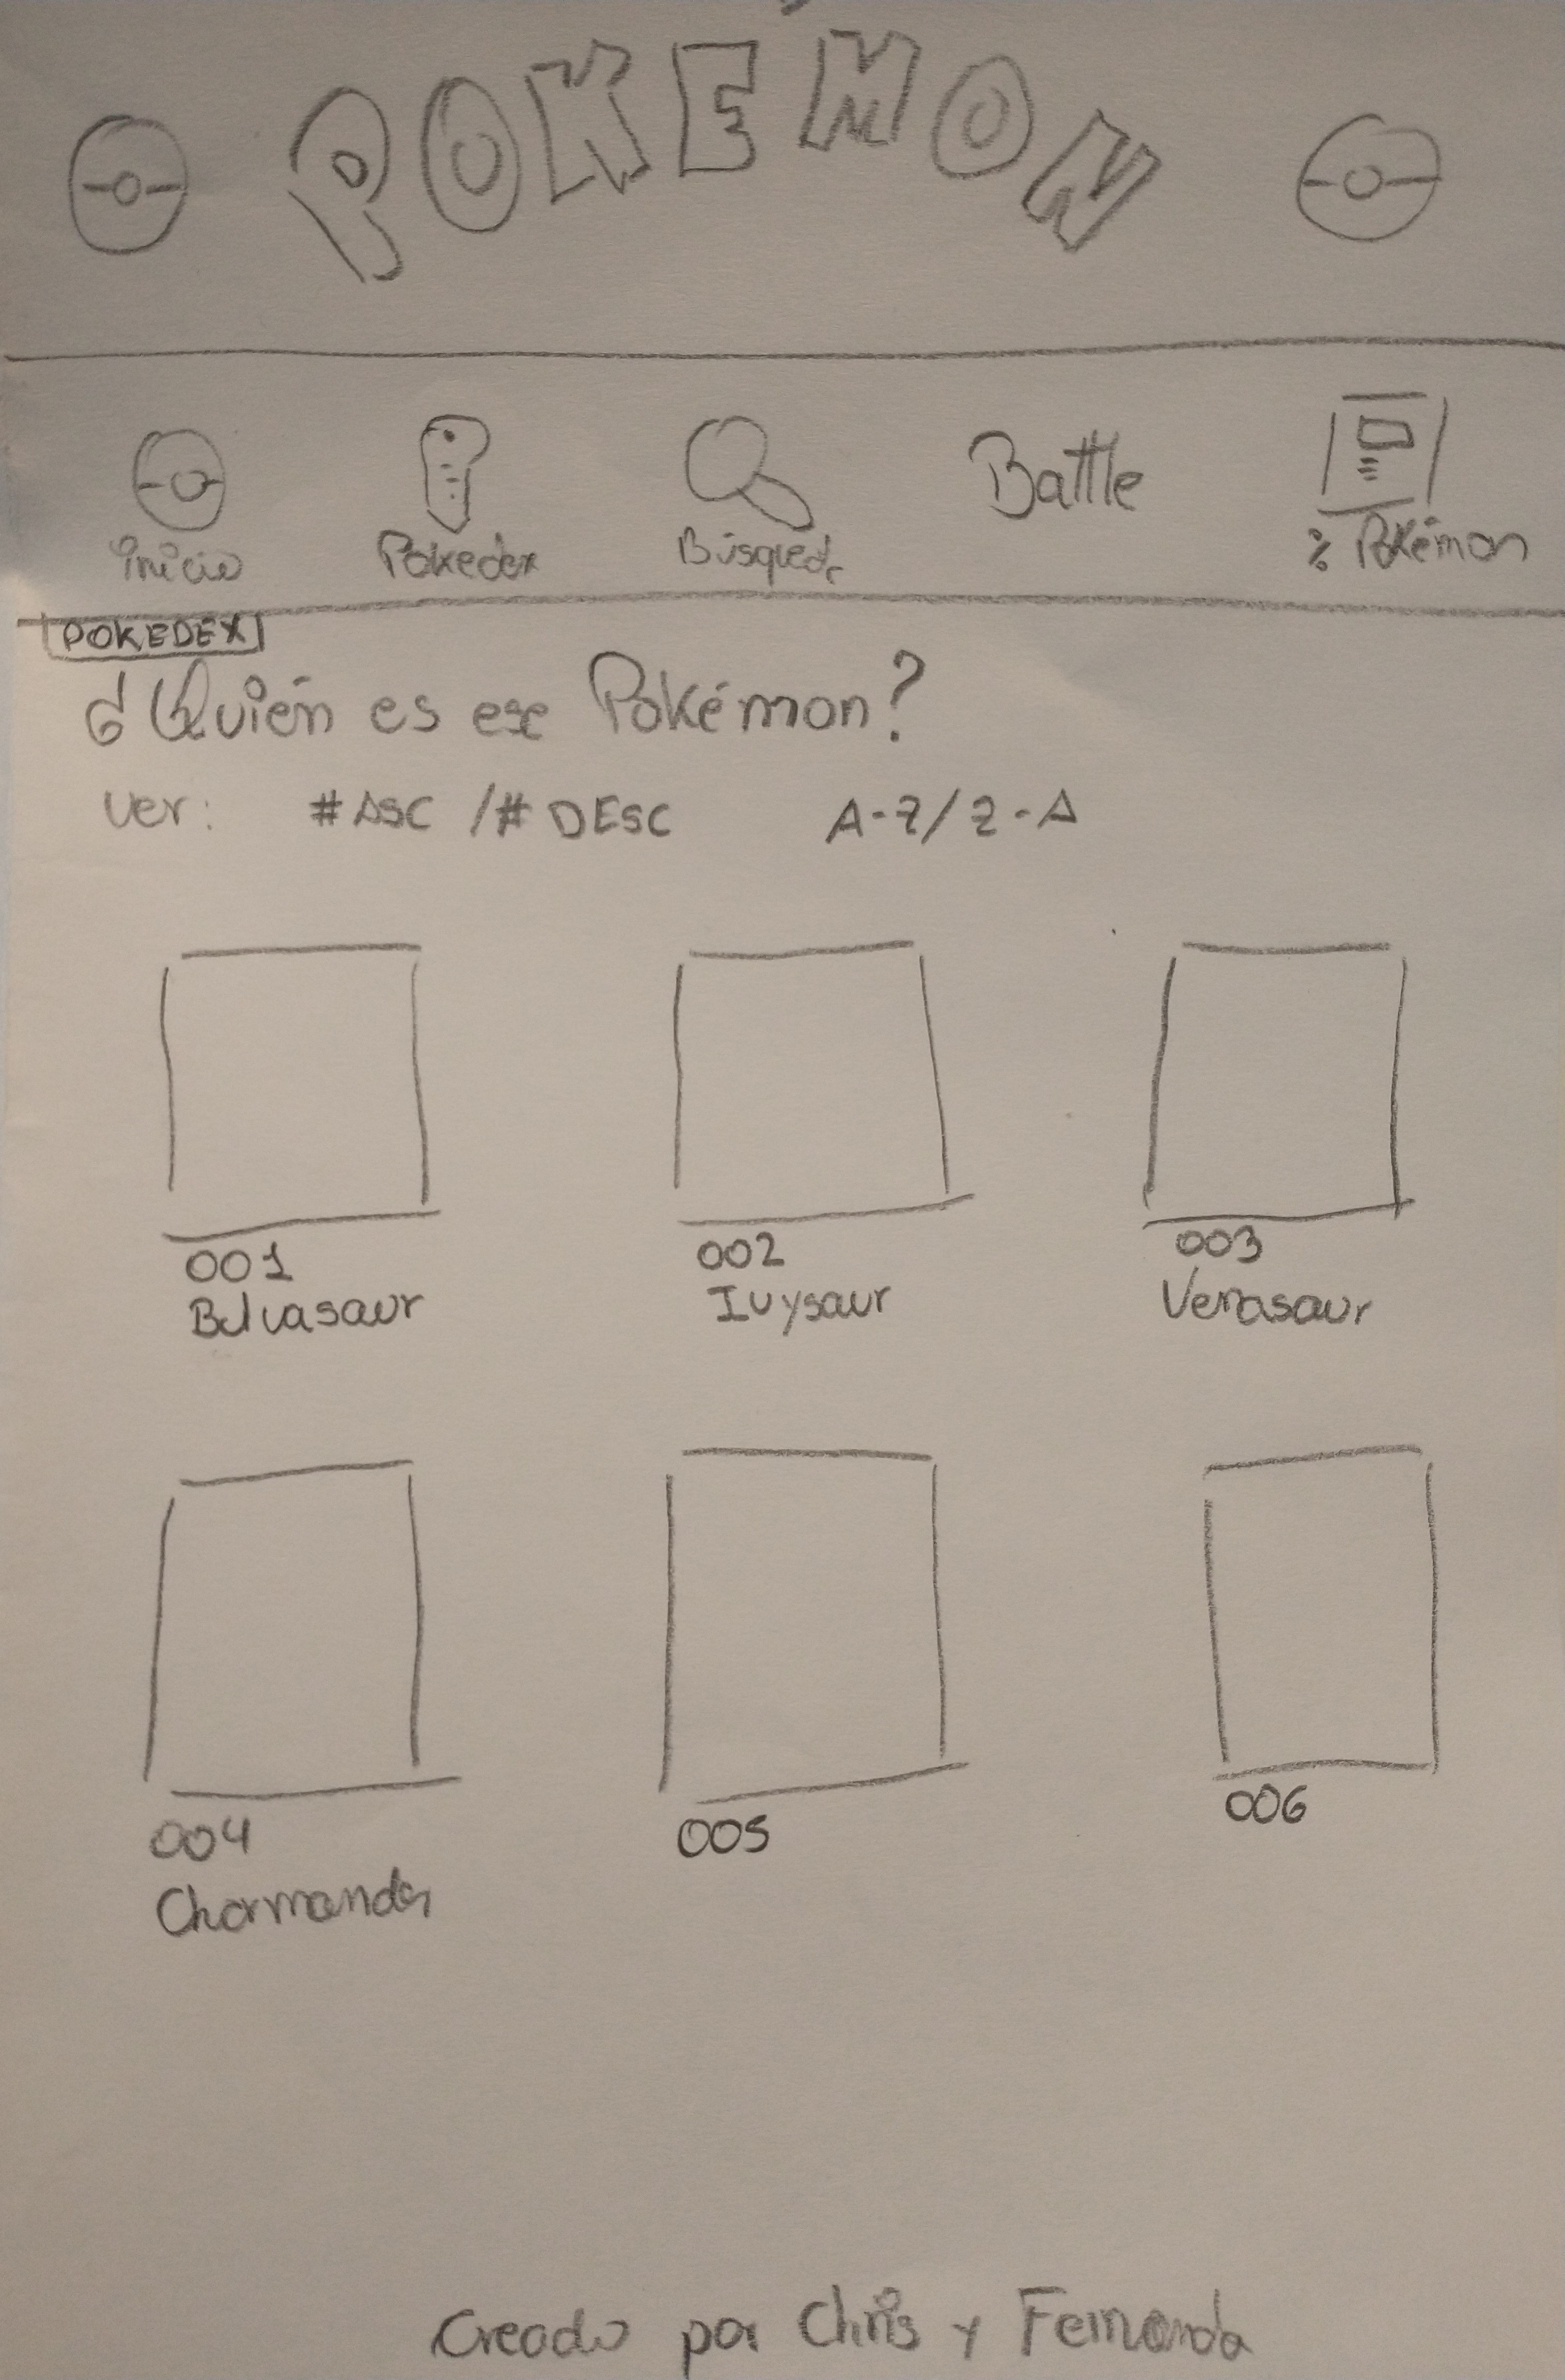 POKEMON
inicio Pokedex Búsqueda Battle % Pokémon
POKEDEX
¿Quién es ese Pokémon?
ver: #ASC /# DESC A-Z/Z-A
001 002 003
Bulvasaur Ivysaur Venasaur
004 005 006
Charmander
Creado por Chris y Fernanda